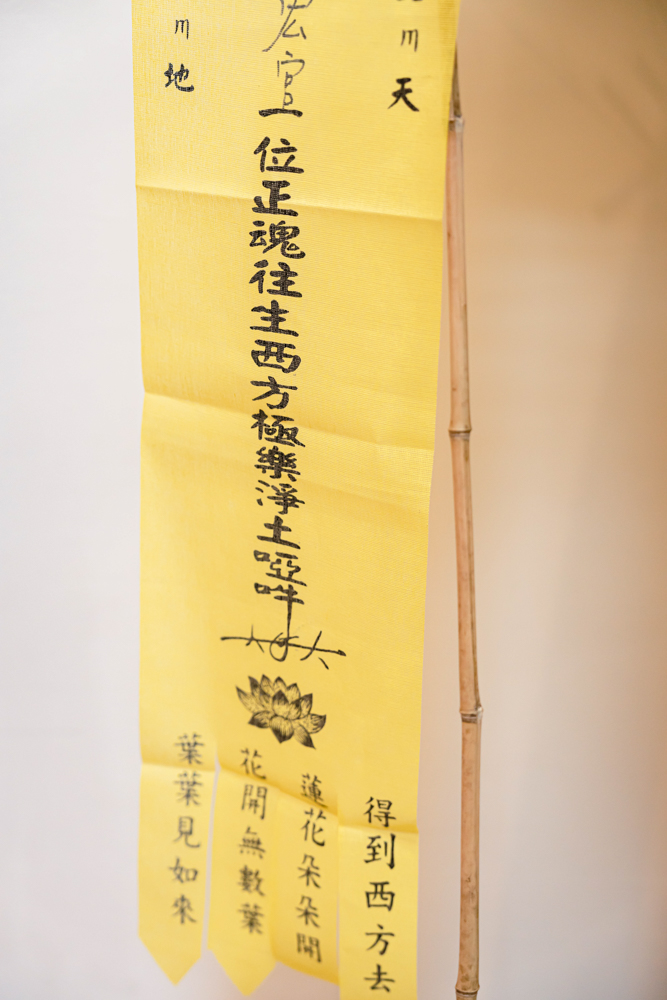 天
宏宣位正魂往生西方極樂淨土啞吽
地
得到西方去
蓮花朵朵開
花開無數葉
葉葉見如來